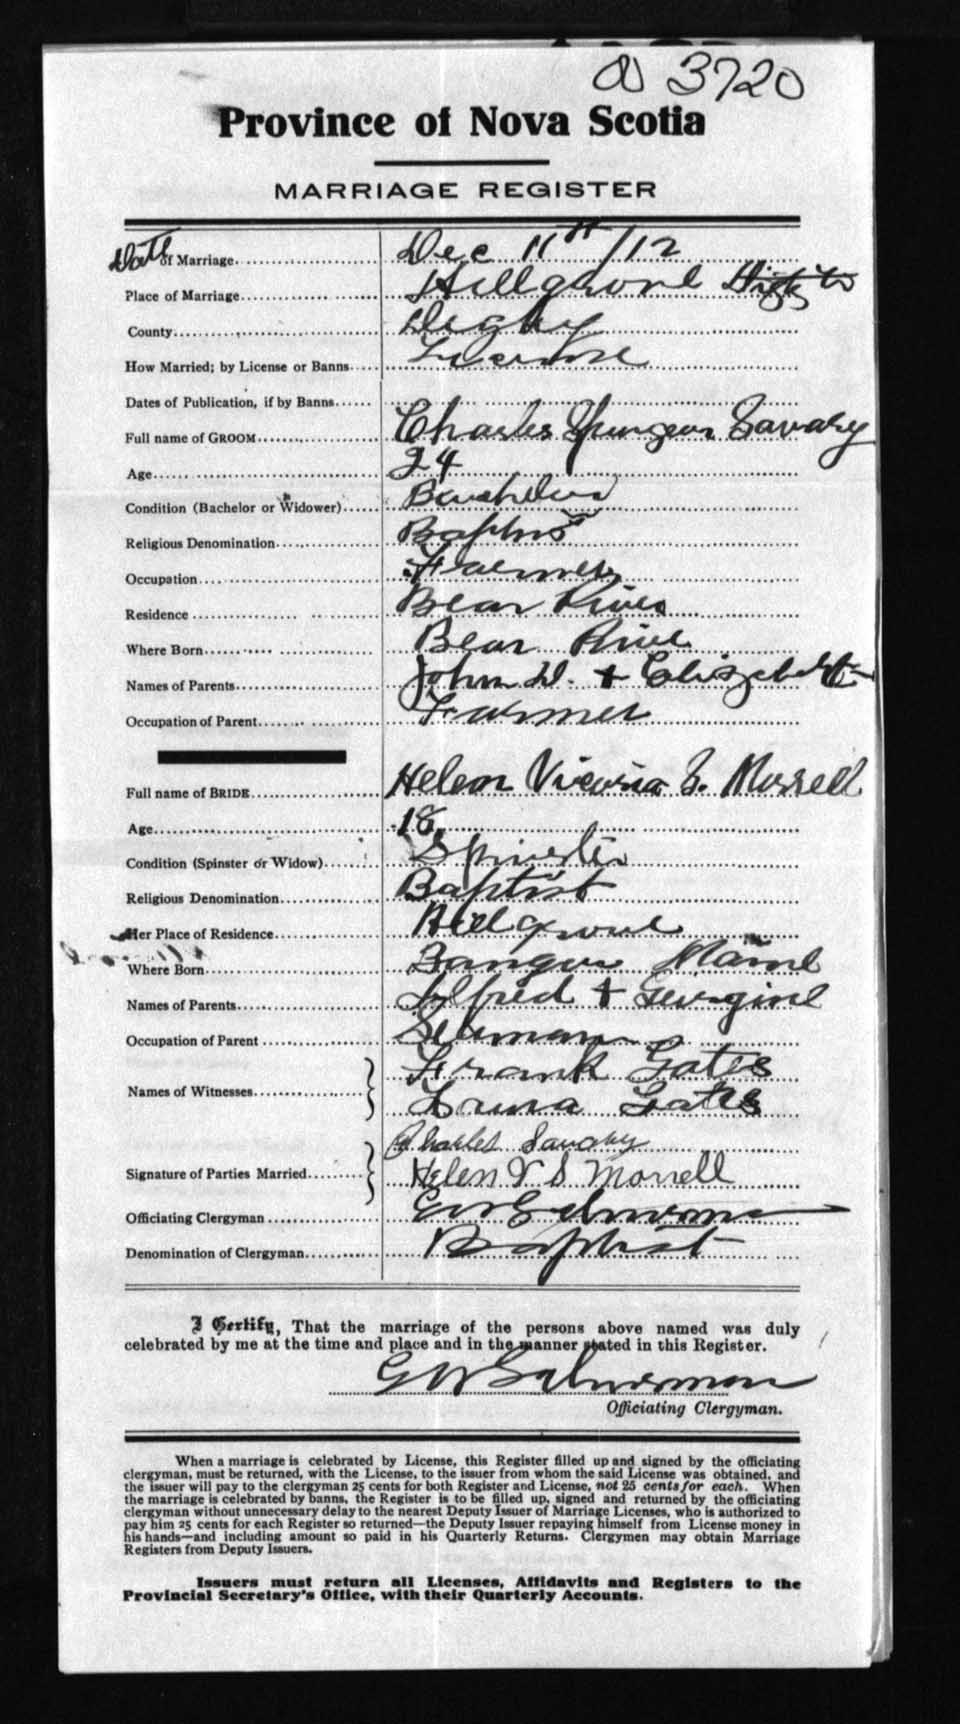 3720
Province of Nova Scotia
MARRIAGE REGISTER
Date of Marriage Dec 11th /12
Place of Marriage Hillgrove
County Digby
How Married; by License or Banns License
Dates of Publication, if by Banns
Full name of GROOM Charles Spurgeon Savary
Age 24
Condition (Bachelor or Widower) Bachelor
Religious Denomination Baptist
Occupation Farmer
Residence Bear River
Where Born Bear River
Names of Parents John D. + Elizabeth
Occupation of Parent Farmer
Full name of BRIDE Helen Victoria S. Morrell
Age 18
Condition (Spinster or Widow) Spinster
Religious Denomination Baptist
Her Place of Residence Hillgrove
Where Born Bangor Maine
Names of Parents Alfred + Georgine
Occupation of Parent Seaman
Names of Witnesses Frank Gates
Gates
Signature of Parties Married Charles Savary
Helen V S Morrell
Officiating Clergyman
Denomination of Clergyman Baptist
I Certify, That the marriage of the persons above named was duly
celebrated by me at the time and place and in the manner stated in this Register.
Officiating Clergyman.
When a marriage is celebrated by License, this Register filled up and signed by the officiating
clergyman, must be returned, with the License, to the issuer from whom the said License was obtained, and
the issuer will pay to the clergyman 25 cents for both Register and License, not 25 cents for each. When
the marriage is celebrated by banns, the Register is to be filled up, signed and returned by the officiating
clergyman without unnecessary delay to the nearest Deputy Issuer of Marriage Licenses, who is authorized to
pay him 25 cents for each Register so returned—the Deputy Issuer repaying himself from License money in
his hands—and including amount so paid in his Quarterly Returns. Clergymen may obtain Marriage
Registers from Deputy Issuers.
Issuers must return all Licenses, Affidavits and Registers to the
Provincial Secretary's Office, with their Quarterly Accounts.